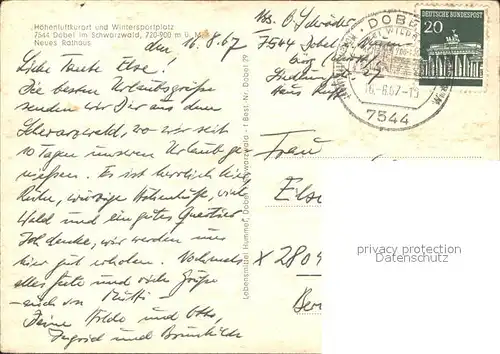 Höhenluftkurort und Wintersportplatz
7544 Dobel im Schwarzwald, 720-900 m ü. M.
Neues Rathaus
den 16.8.67
Liebe Tante Else!
Die besten Urlaubsgrüße
senden wir Dir aus dem
Schwarzwald, wo wir seit
10 Tagen unseren Urlaub ge-
nießen. Es ist herrlich hier,
Ruhe, würzige Höhenluft, viel
Wald und ein gutes Quartier
Ich denke, wir werden uns
hier gut erholen. Nochmals
alles Gute und viele Grüße
– auch von Mutti –
Deine Hilde und Otto,
Ingrid und Brunhilde
Lebensmittel Hummel, Dobel Schwarzwald - 1 Best. Nr. Dobel 29
Abs. O. Schröder
7544 Dobel
Haus
DEUTSCHE BUNDESPOST
20
DOBEL
16.-8.67-19
7544
Frau
Else
X 2804
privacy protection
by Ansichtskartenversand.com